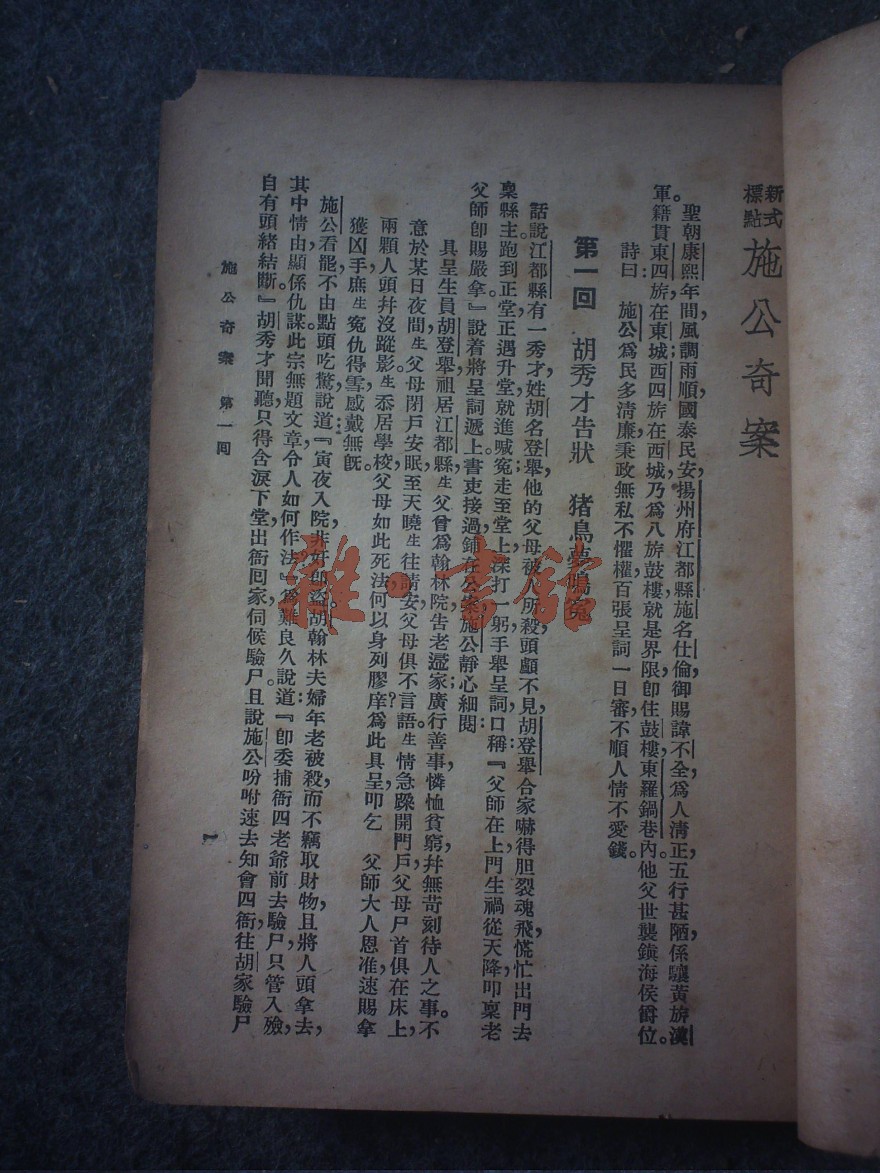 新式標點 施公奇案
聖朝康熙年間，風調雨順，國泰民安，揚州府江都縣施名仕倫，御賜諱不全，爲人清正，五行甚陋，係驤黃旂漢
軍籍貫。東四旂在東城，西四旂在西城，乃爲八旂，鼓樓就是界限，卽住鼓樓東羅鍋巷內，他父世襲鎮海侯爵位。
詩曰：施公爲民多清廉，秉政無私不懼權，百張呈詞一日審，不順人情不愛錢。
第一回　胡秀才告狀　猪鳥夢鳴寃
話說江都縣有一秀才，姓胡名登舉，他的父母被人所殺，頭顱不見，胡登舉合家嚇得胆裂魂飛，慌忙出門去
稟縣主，跑到正堂，正遇升堂，就進喊寃，走至堂上，深打一躬，手舉呈詞，口稱：『父師在上，門生禍從天降，叩稟老
父師卽賜嚴拿。』說着將呈詞遞上，書吏接過，鋪在公案，施公靜心細閱：
具呈生員胡登舉，祖居江都縣，生父曾爲翰林院，告老還家，廣行善事，憐恤貧窮，幷無苛刻待人之事。不
意於某日夜間，生父母閉戶安眠，至天曉，生往請安，父母俱不言語，生情急躁開門戶，父母尸首俱在床上，
兩顆人頭幷沒蹤影，生忝居學校，父母如此死法，何以身列膠庠？爲此具呈，叩乞　父師大人恩准速賜拿
獲凶手，庶生寃仇得雪，感戴無旣。
施公看罷，不由點頭吃驚，說道：『寅夜入院，非奸卽盜，胡翰林夫婦年老被殺，而不竊取財物，且將人頭拿去，
其中情由，顯係仇謀，此宗無題文章，令人如何作法？』爲難良久，說道：『卽委捕衙四老爺前去驗尸，只管入殮，
自有頭緒結斷。』胡秀才聞聽，只得含淚下堂，出衙囘家，伺候驗尸。且說施公吩咐速去知會四衙，往胡家驗尸
施公奇案　第一囘
1
雜·書館